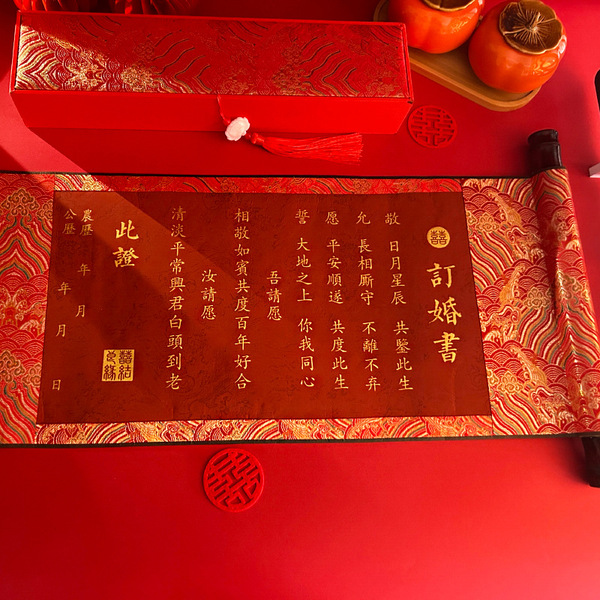 囍
訂婚書
敬 日月星辰 共鑒此生
允 長相厮守 不離不弃
愿 平安順遂 共度此生
誓 大地之上 你我同心
吾請愿
相敬如賓共度百年好合
汝請愿
清淡平常興君白頭到老
此證
囍結
農歷 年 月
公歷 年 月 日
囍
囍